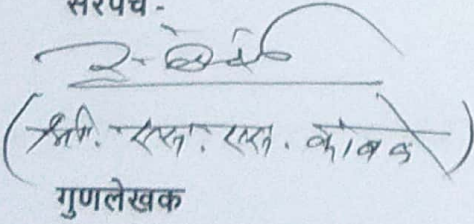 सरपंच -
(श्री. एस. एस. कांबळे)
गुणलेखक